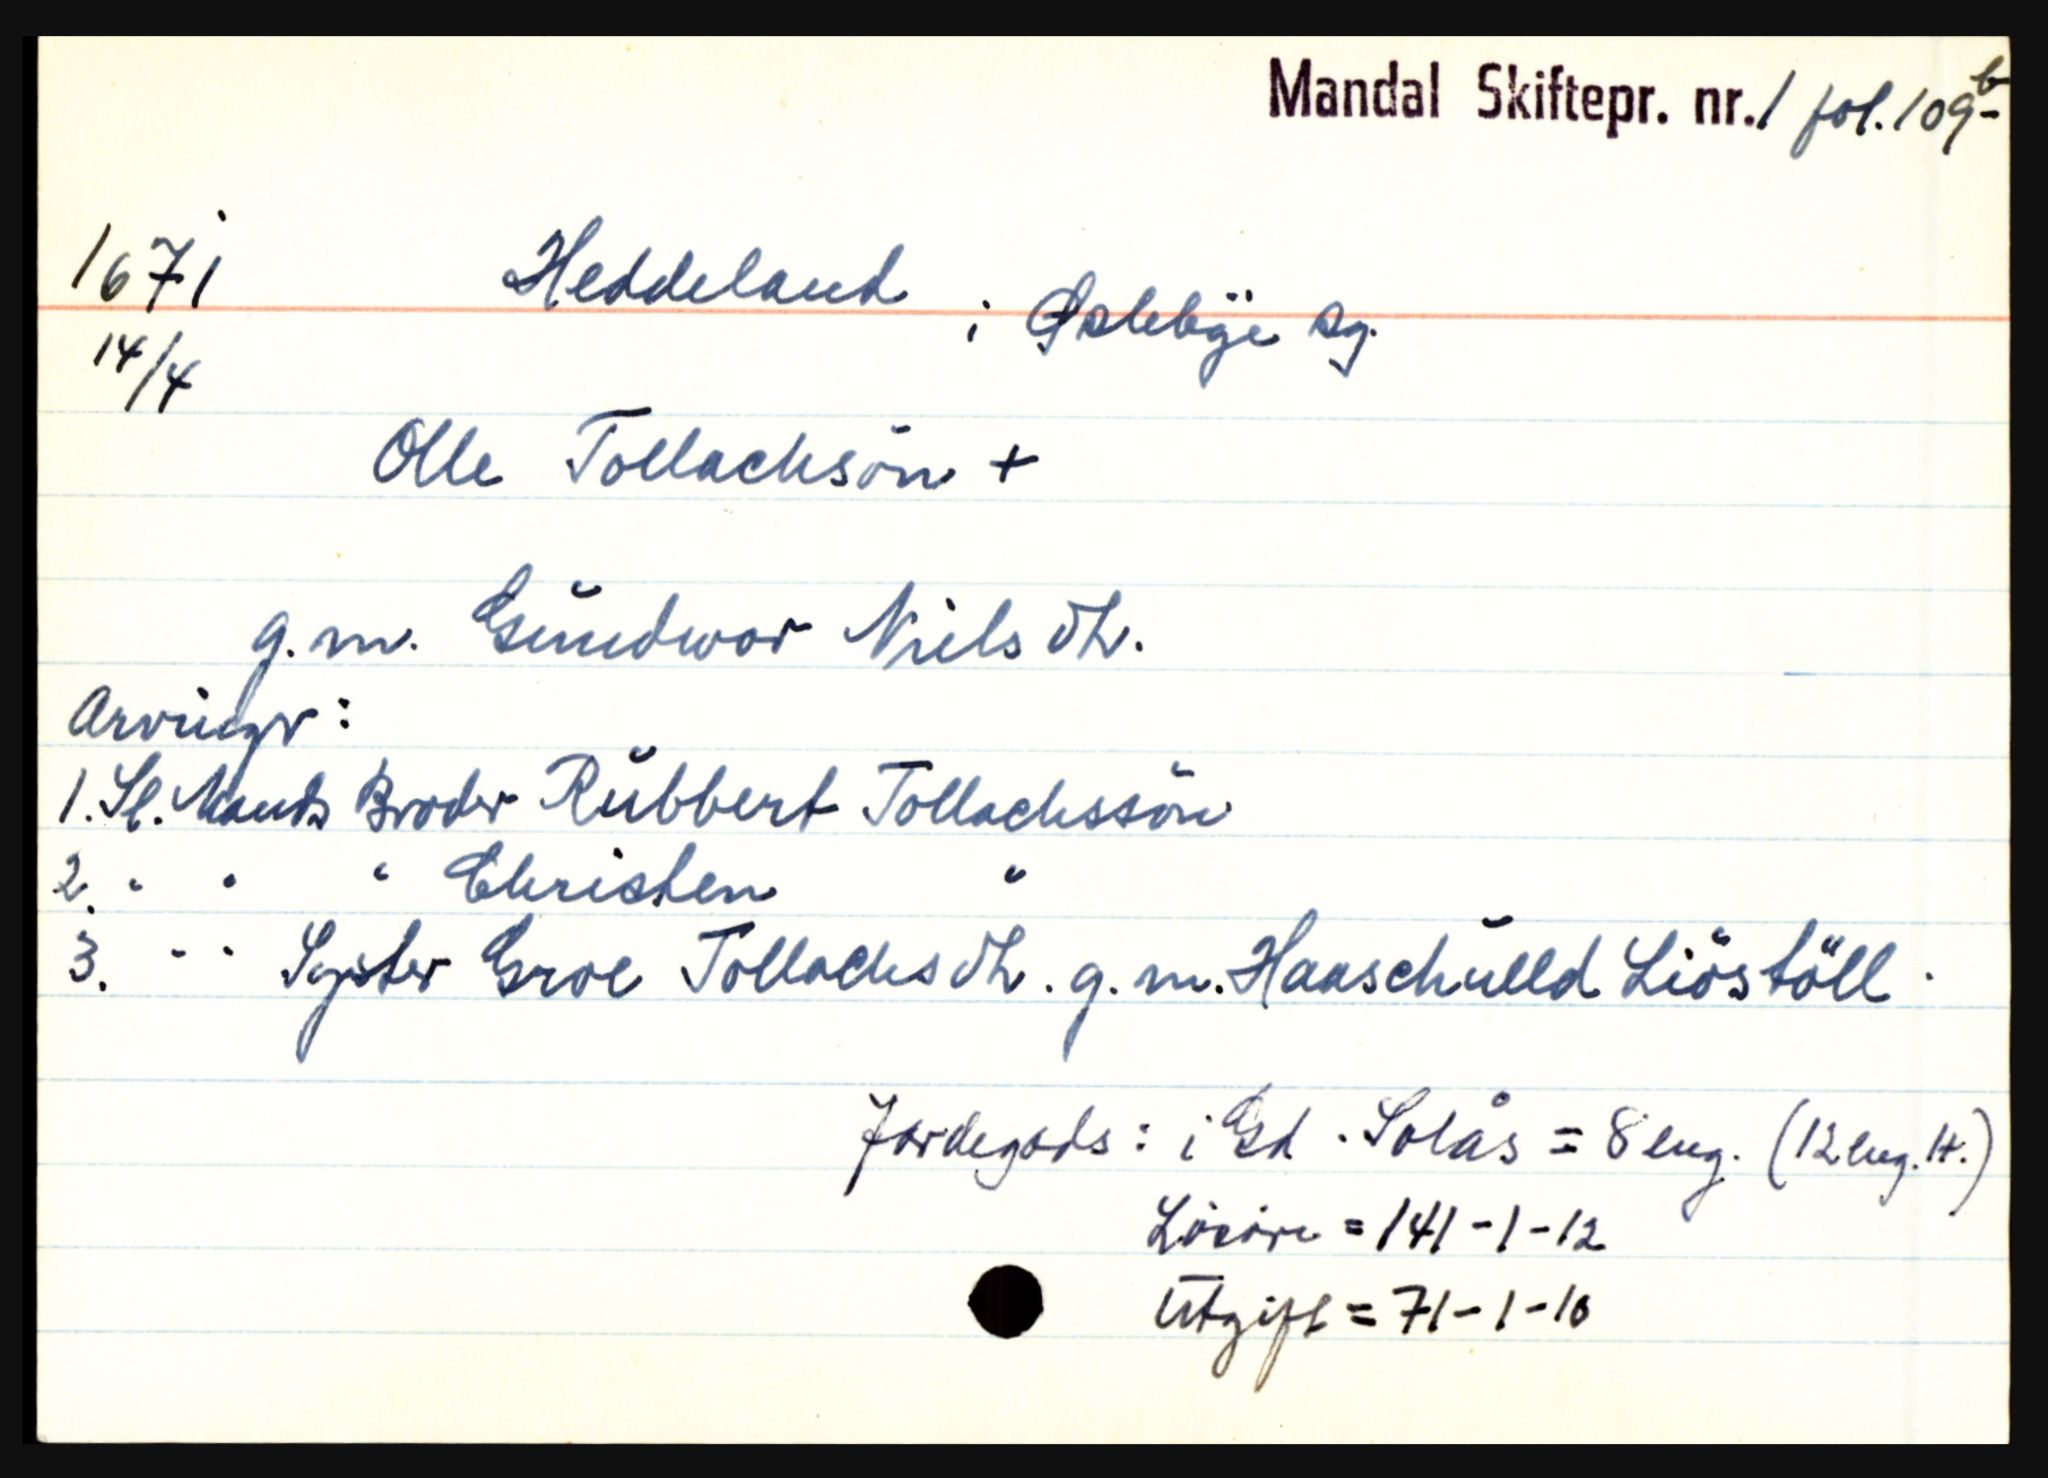 Mandal Skiftepr. nr. 1 fol. 109b-
1671 Heddeland i Øslebÿe sg.
14/4
Olle Tollachsön +
g.m. Gŭndwor Niels dtr.
Arvingr:
1. Sl. Mands Broder Rŭbbert Tollachssön
2. " " " Christen "
3. " " Syster Groe Tollachs dtr. g.m. Haaschŭlld Liöstöll.
Jordegods: i Gd. Solås = 8 eng. (12 eng. )
Lösöre = 141-1-12
Utgift = 71-1-10